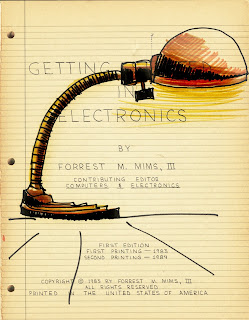 GETTING
IN
ELECTRONICS
BY
FORREST M. MIMS, III
CONTRIBUTING EDITOR
COMPUTERS & ELECTRONICS
FIRST EDITION
FIRST PRINTING — 1983
SECOND PRINTING — 1984
COPYRIGHT © 1983 BY FORREST M. MIMS, III
ALL RIGHTS RESERVED
PRINTED IN THE UNITED STATES OF AMERICA